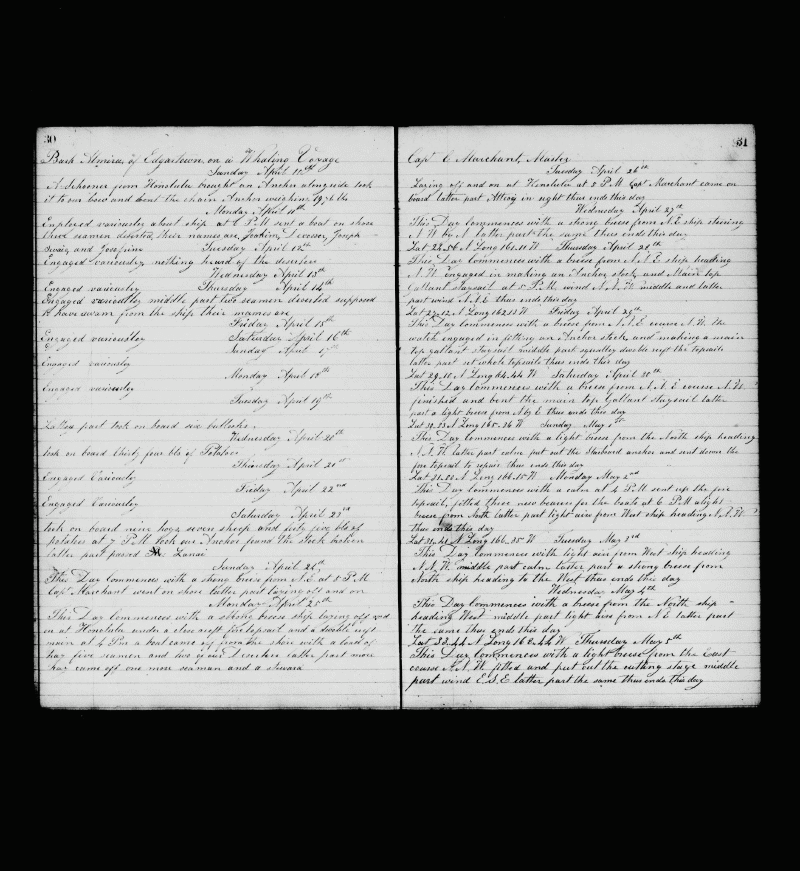 30
Bark Almira, of Edgartown, on a Whaling Voyage
Sunday April 10th
A Schooner from Honolulu brought an Anchor alongside took
it to our bow and bent the chain Anchor weighing 1976 lbs
Monday April 11th
Employed variously about ship at 6 P.M sent a boat on shore
three seamen deserted, their names are, Joakim, Joseph
and Josefine Tuesday April 12th
Engaged variously nothing heard of the deserters
Wednesday April 13th
Engaged variously Thursday April 14th
Engaged variously middle part two seamen deserted supposed
to have swam from the ship their names are
Friday April 15th
Engaged variously Saturday April 16th
Sunday April 17th
Engaged variously
Monday April 18th
Engaged variously
Tuesday April 19th
Latter part took on board six bullocks
Wednesday April 20th
took on board thirty four bbls of Potatoes
Thursday April 21st
Engaged Variously
Friday April 22nd
Engaged Variously
Saturday April 23rd
took on board nine hogs seven sheep and sixty five bbls of
potatoes at 7 P.M took our Anchor found the Stock broken
latter part passed Lanai
Sunday April 24th
This Day Commences with a strong breeze from N.E. at 5 P.M
Capt Marchant went on shore latter part laying off and on
Monday April 25th
This Day Commences with a strong breeze ship laying off and
on at Honolulu under a close reeft fore topsail and a double reeft
main at 4 P.m a boat came off from the shore with a load of
hay five seamen and two latter part more
hay came off one more seaman and a
31
Capt C Marchant, Master
Tuesday April 26th
Laying off and on at Honolulu at 5 P.M Capt Marchant came on
board latter part in sight thus ends this day
Wednesday April 27th
This Day Commences with a strong breeze from N.E ship steering
N.W by N latter part the same thus ends this day
Lat 22.56 N Long 161.11 W Thursday April 28th
This Day Commences with a breeze from N.N.E ship heading
N.W. engaged in making an Anchor stock and Main top
Gallant staysail at 5 P.M. wind N.N.W. middle and latter
part wind N.N.E thus ends this day
Lat 27.12 N Long 162.13 W Friday April 29th
This Day commences with a breeze from N.N.E course N.W. the
watch engaged in fitting an Anchor stock and making a main
top gallant Staysail middle part squalley double reeft the topsails
latter part set whole topsails thus ends this day
Lat 29.10 N Long 164.44 W Saturday April 30th
This Day commences with a breeze from N.N.E course N.W.
finished and bent the main top Gallant Staysail latter
part a light breeze from N by E thus ends this day
Lat 30.23 N Long 165.26 W Sunday May 1st
This Day Commences with a light breeze from the North ship heading
N.N.W. latter part calm put out the Starboard anchor and sent down the
fore topsail to repair thus ends this day
Lat 31.22 N Long 166.15 W Monday May 2nd
This Day Commences with a calm at 4 P.M sent up the fore
topsail, fitted three new bearers for the boats at 6 P.M a light
breeze from North latter part light airs from West ship heading N.N.W
thus ends this day
Lat 31.41 N Long 166.35 W Tuesday May 3rd
This Day Commences with light airs from West ship heading
N.N.W. middle part calm latter part a strong breeze from
North ship heading to the West thus ends this day
Wednesday May 4th
This Day Commences with a breeze from the North ship
heading West middle part light airs from N.E latter part
the same thus ends this day
Lat 32.44 N Long 168.44 W Thursday May 5th
This Day Commences with a light breeze from the East
course N.N.W fitted and put out the cutting stage middle
part wind E.S.E latter part the same thus ends this day